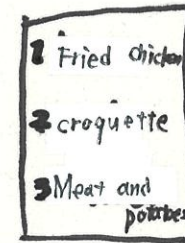 1 Fried chicken
2 croquette
3 Meat and
potatoes